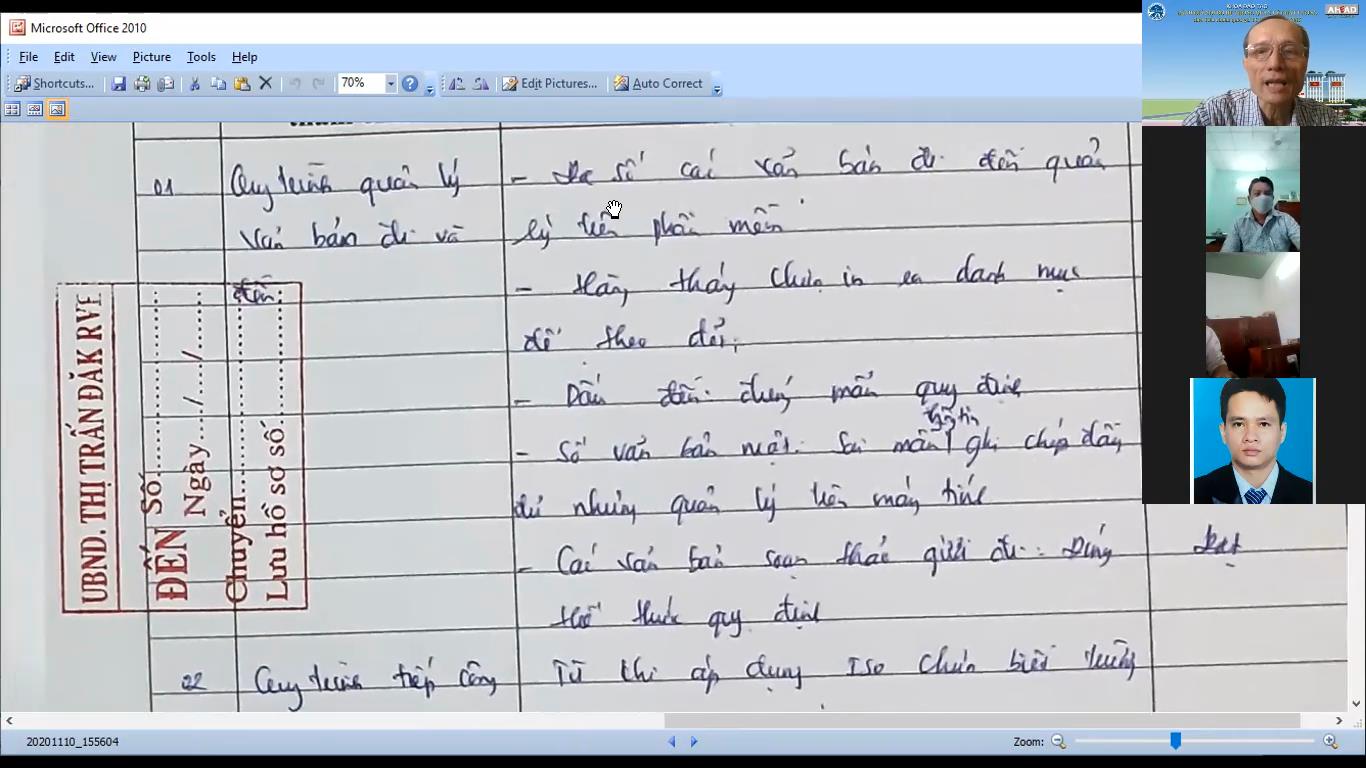 Microsoft Office 2010
File Edit View Picture Tools Help
Shortcuts... 70% Edit Pictures... Auto Correct
AHEAD
01 Quy trình quản lý
văn bản đi và
đến:
- Đa số các văn bản đi đến quản
lý trên phần mền
- Hàng tháng chưa in ra danh mục
để theo dõi,
- Dấu đến: đúng mẫu quy định
thông tin
- Số văn bản mật: Sai mẫu ghi chép đầy
đủ nhưng quản lý trên máy tính
- Các văn bản soạn thảo gửi đi: Đúng
thể thức quy định
Đạt
02 Quy trình tiếp công
Từ khi áp dụng Iso chưa
UBND. THỊ TRẤN ĐĂK RVE
ĐẾN Số:
Ngày...../...../.....
Chuyển
Lưu hồ sơ số
20201110_155604
Zoom: